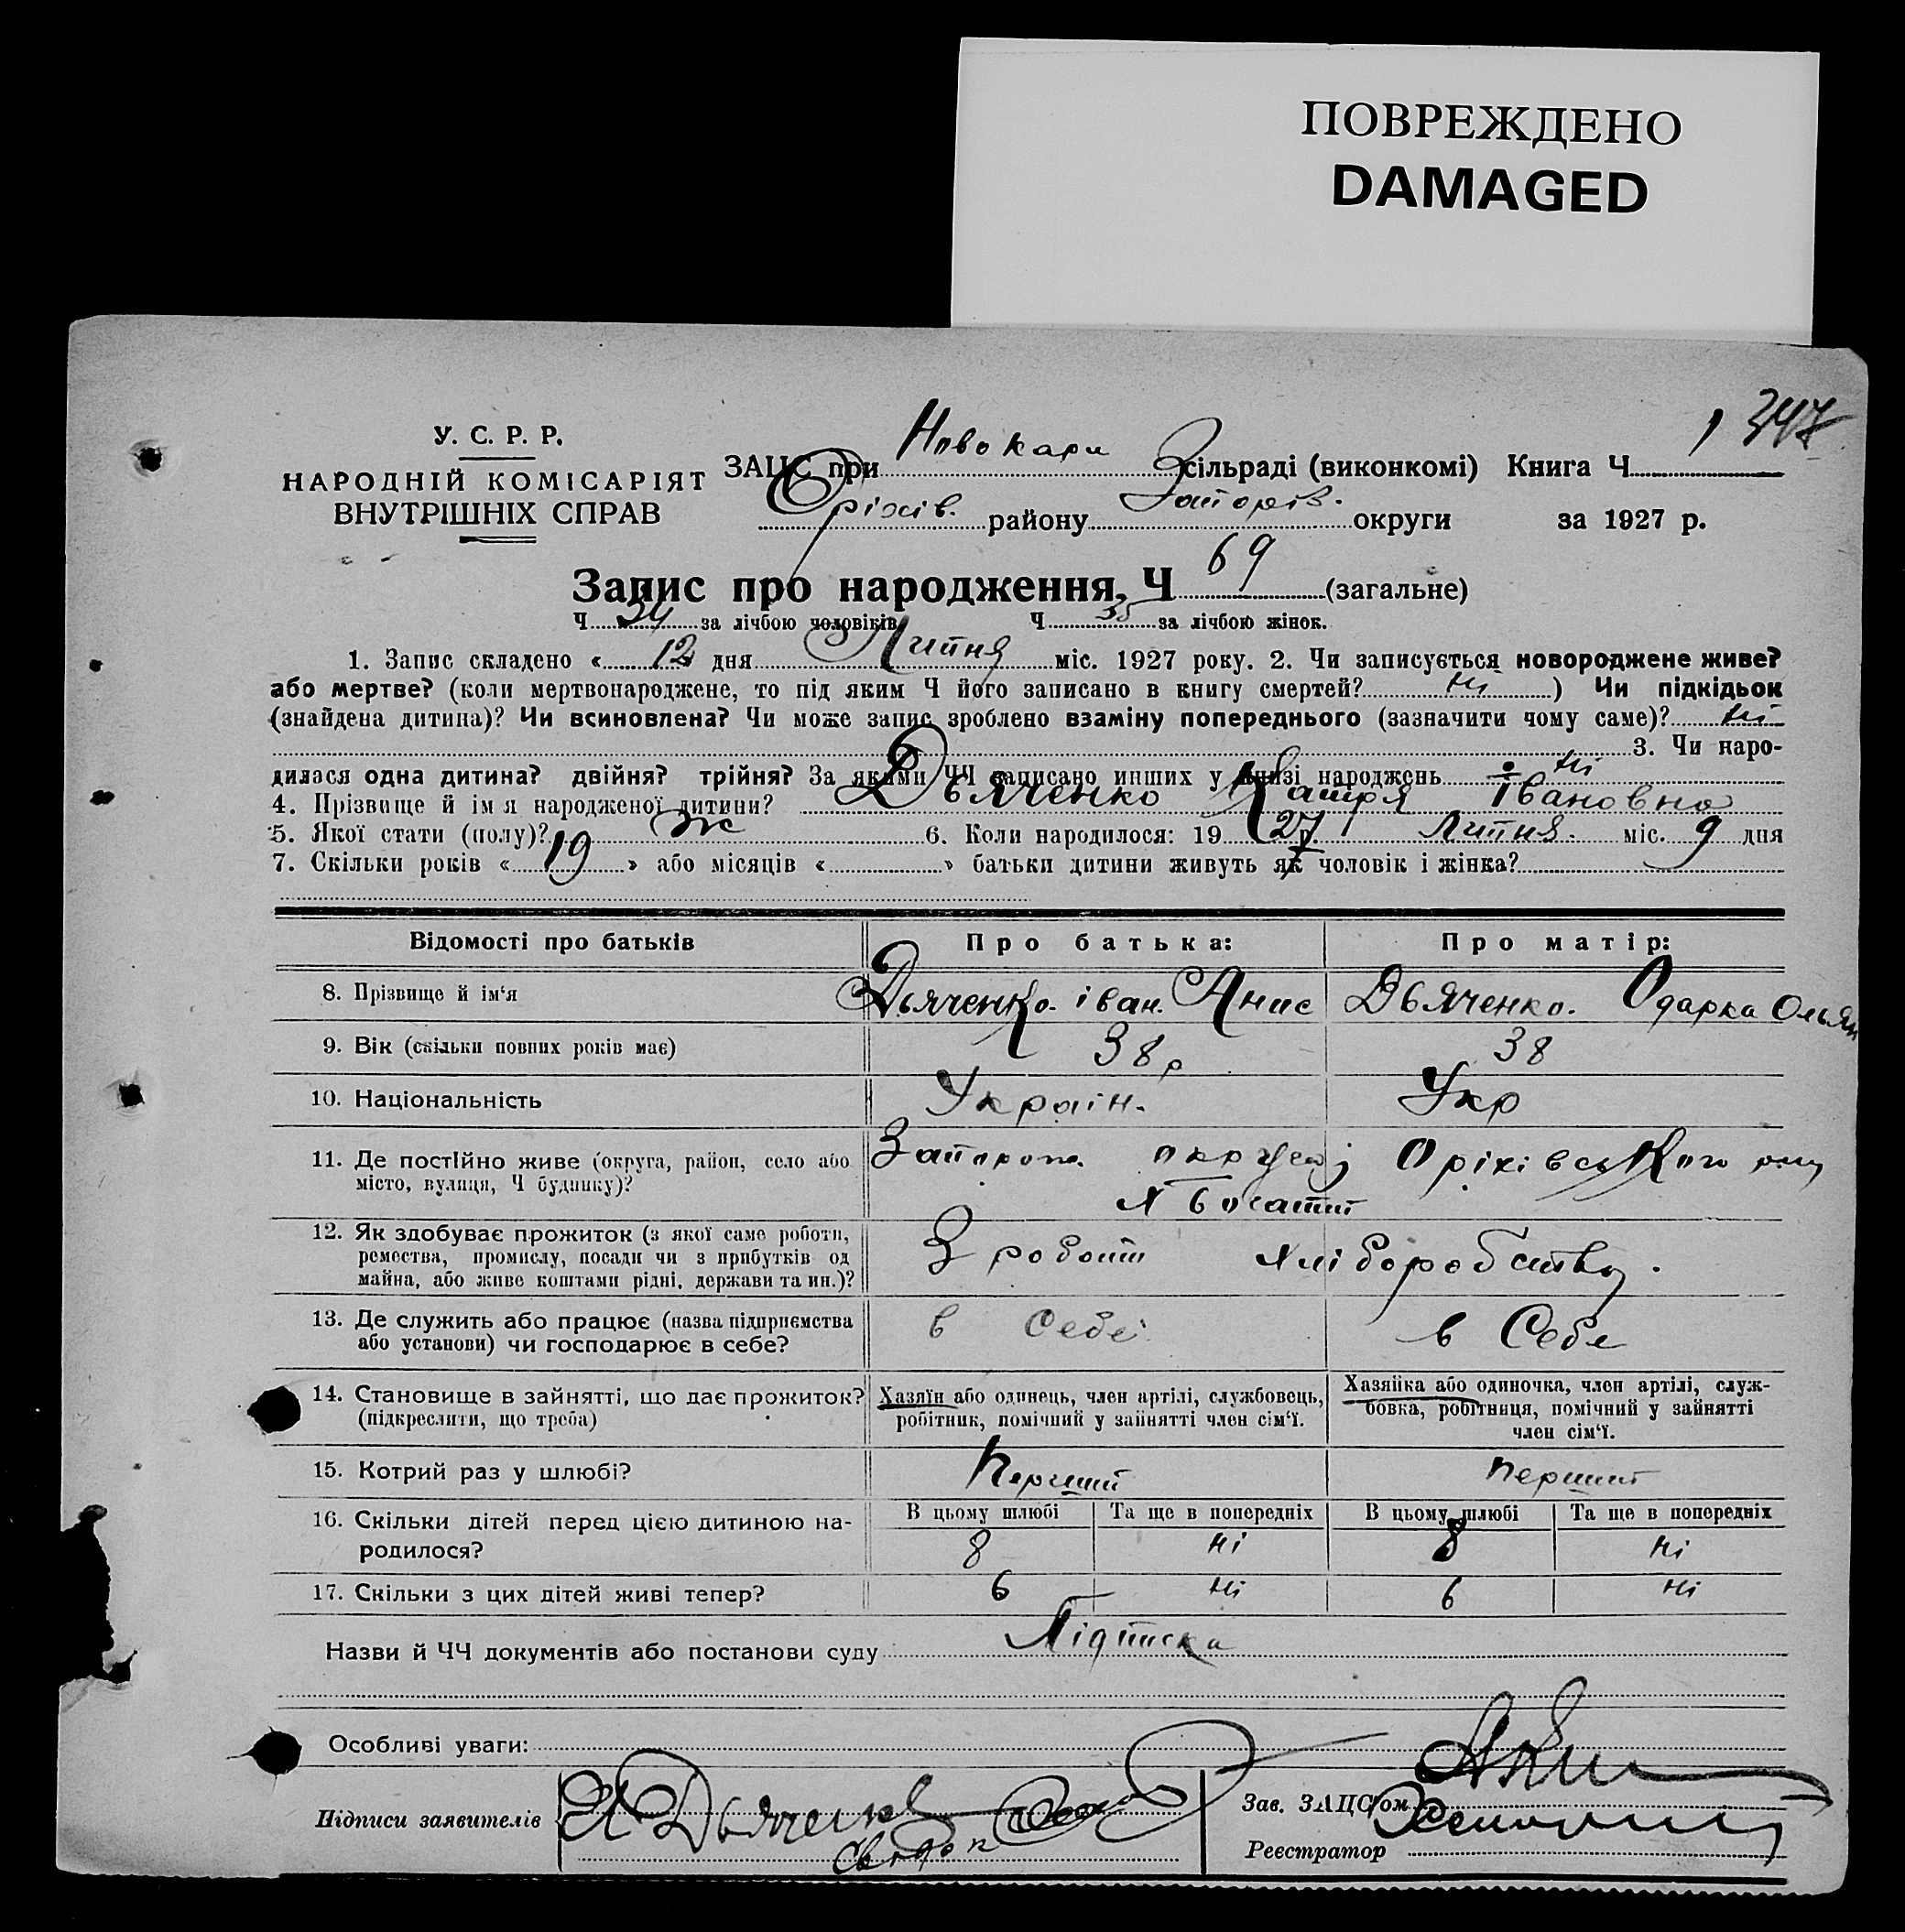 ПОВРЕЖДЕНО
DAMAGED
347
У. С. Р. Р.
НАРОДНІЙ КОМІСАРІЯТ
ВНУТРІШНІХ СПРАВ
ЗАЦС при Новокари сільраді (виконкомі) Книга Ч 1
Оріхів. району Запоріз. округи за 1927 р.
Запис про народження, Ч 69 (загальне)
Ч 34 за лічбою чоловіків Ч 35 за лічбою жінок.
1. Запис складено « 12 дня Липня міс. 1927 року. 2. Чи записується новороджене живе?
або мертве? (коли мертвонароджене, то під яким Ч його записано в книгу смертей? ні ) Чи підкідьок
(знайдена дитина)? Чи всиновлена? Чи може запис зроблено взаміну попереднього (зазначити чому саме)? ні
3. Чи наро-
дилася одна дитина? двійня? трійня? За якими ЧЧ записано инших у книзі народжень ні
4. Прізвище й імя народженої дитини? Дьяченко Катря Івановна
5. Якої стати (полу)? ж 6. Коли народилося: 19 27 р. Липня. міс. 9 дня
7. Скільки років « 19 » або місяців « » батьки дитини живуть як чоловік і жінка?
Відомості про батьків Про батька: Про матір:
8. Прізвище й ім'я Дьяченко. Іван. Анис Дьяченко. Одарка Ольян
9. Вік (скільки повних років має) 38р 38
10. Національність Україн. Укр
11. Де постійно живе (округа, район, село або Запорож. округи Оріхівського рну
місто, вулиця, Ч будинку)?
12. Як здобуває прожиток (з якої саме роботи, З роботи хліборобству.
ремества, промислу, посади чи з прибутків од
майна, або живе коштами рідні, держави та ин.)?
13. Де служить або працює (назва підприємства в Себе в Себе
або установи) чи господарює в себе?
14. Становище в зайнятті, що дає прожиток? Хазяїн або одинець, член артілі, службовець, Хазяйка або одиночка, член артілі, служ-
(підкреслити, що треба) робітник, помічний у зайнятті член сім'ї. бовка, робітниця, помічний у зайнятті
член сім'ї.
15. Котрий раз у шлюбі? Перший перший
16. Скільки дітей перед цією дитиною на- В цьому шлюбі Та ще в попередніх В цьому шлюбі Та ще в попередніх
родилося? 8 ні 8 ні
17. Скільки з цих дітей живі тепер? 6 ні 6 ні
Назви й ЧЧ документів або постанови суду Підписка
Особливі уваги:
Підписи заявителів Дьяченко Зав. ЗАЦС'ом
Свідок Реєстратор